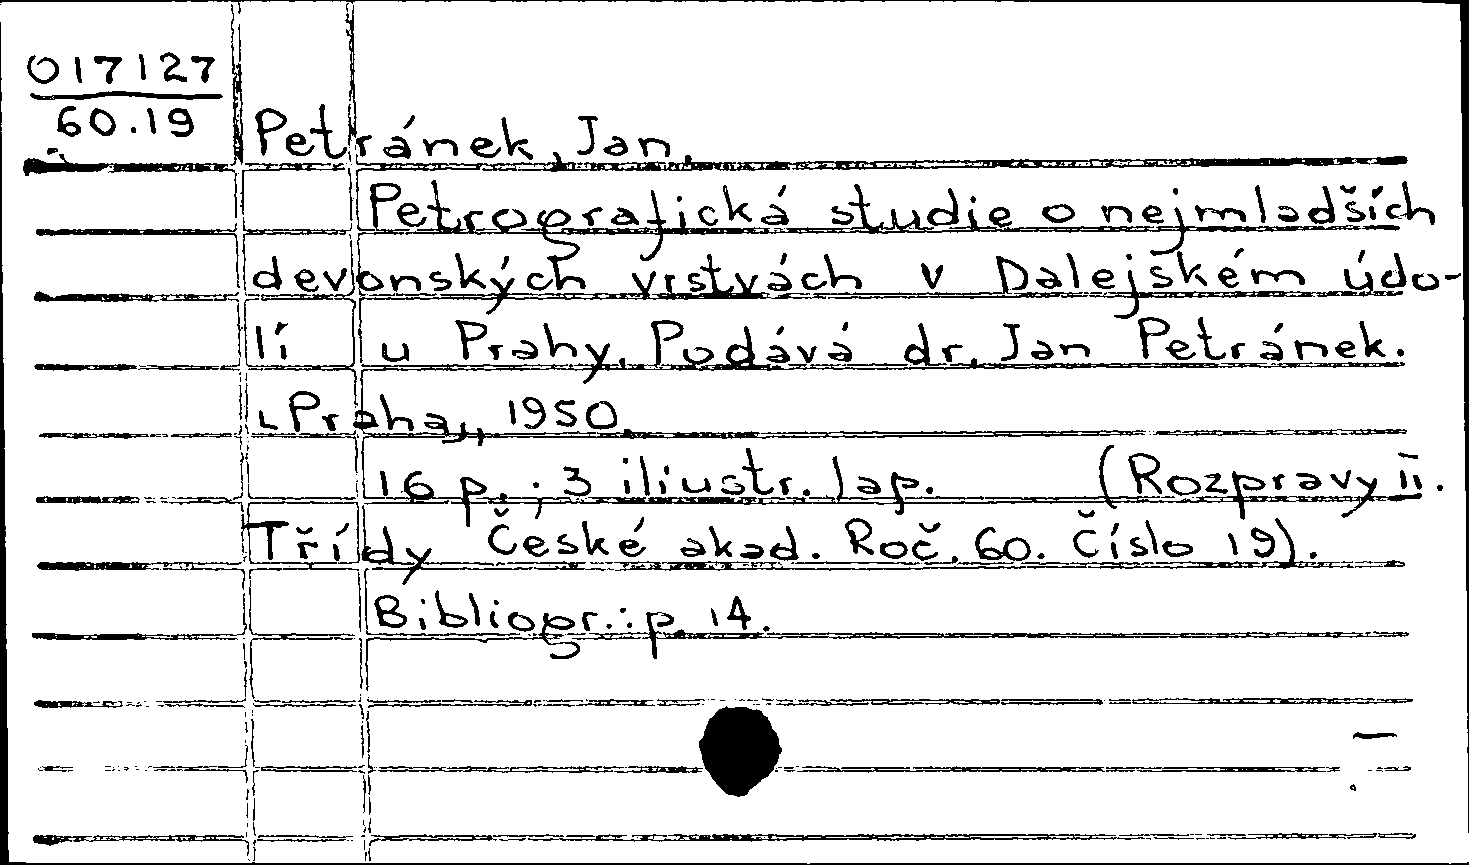 017127
60.19
Petránek, Jan.
Petrografická studie o nejmladších
devonských vrstvách v Dalejském údo-
lí u Prahy. Podává dr. Jan Petránek.
[Praha], 1950.
16 p.; 3 iliustr. lap. (Rozpravy II.
Třídy České akad. Roč. 60. Číslo 19).
Bibliogr.: p. 14.